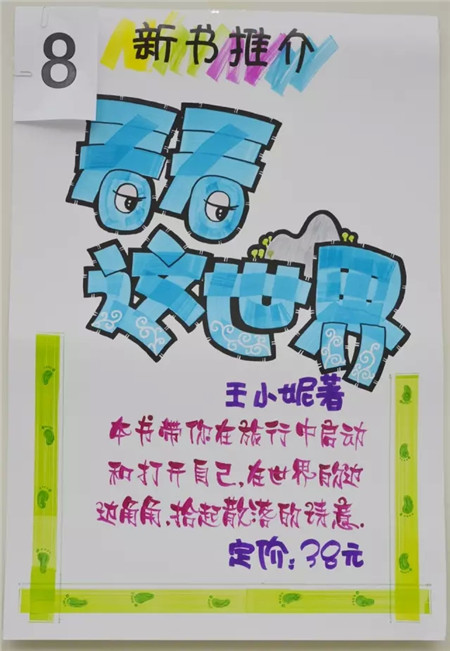 8
新书推介
看看
这世界
王小妮著
本书带你在旅行中启动
和打开自己,在世界的边
边角角,拾起散落的诗意.
定价:38元